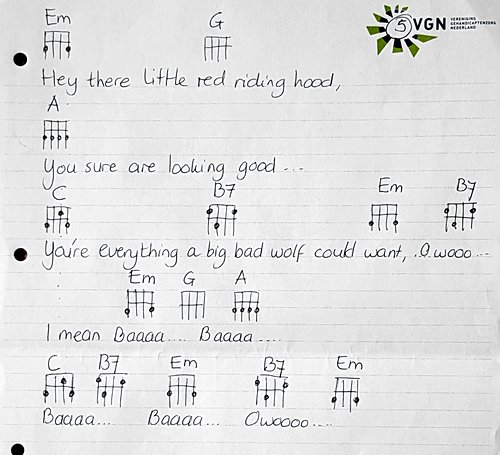 Em G
5 VGN VERENIGING GEHANDICAPTENZORG NEDERLAND
Hey there little red riding hood,
A
You sure are looking good ...
C B7 Em B7
You're everything a big bad wolf could want, .Owooo ...
Em G A
I mean Baaaa.... Baaaa.....
C B7 Em B7 Em
Baaaa.... Baaaa... Owoooo.....